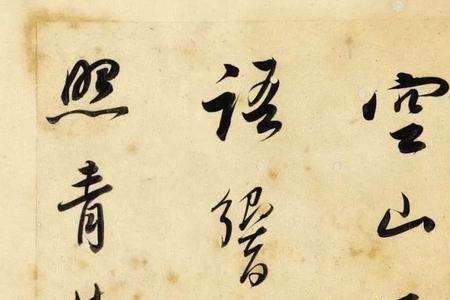 空山
語響
照青